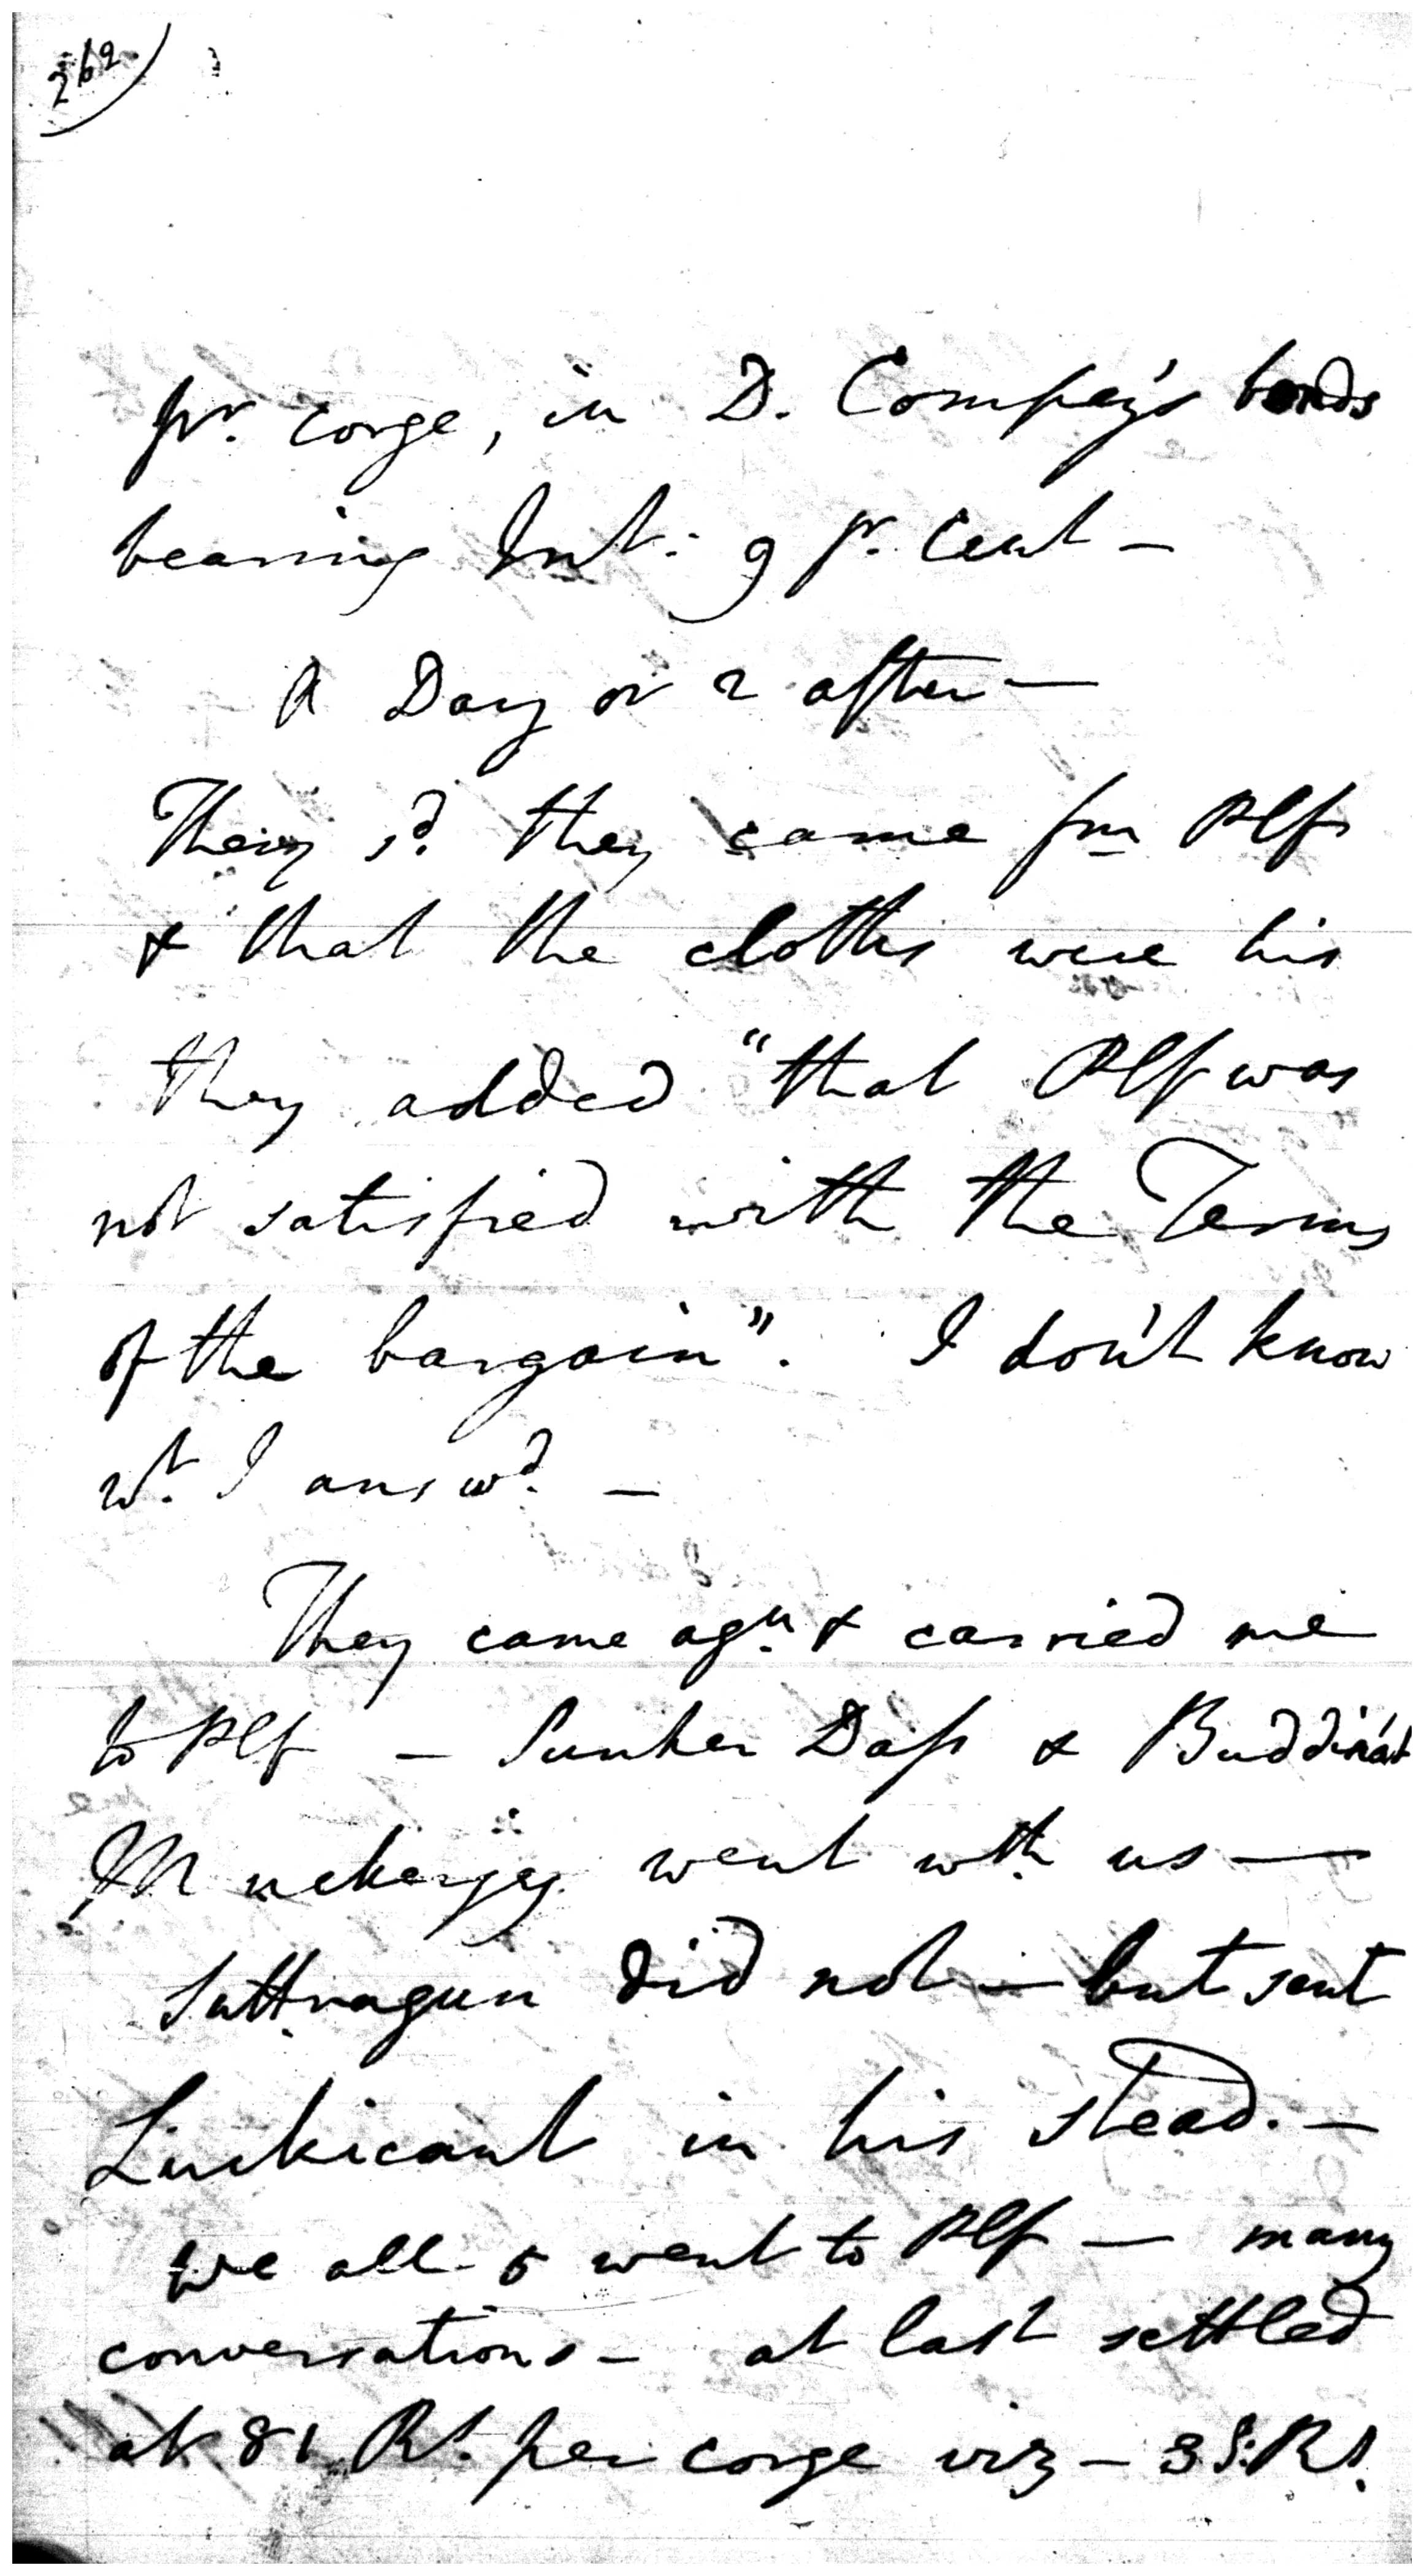 262
pr. corge, in D. Compey's bonds
bearing Int: 9 pr. Cent —
A Day or 2 after —
They sd. they came fm Plf
& that the cloths were his
they added "that Plf was
not satisfied with the Terms
of the bargain". I don't know
wt. I answd. —
They came agn. & carried me
to Plf — Sunker Dass & Buddinát
Muckerjey went wth us —
Suttragun did not — but sent
Luckicant in his stead. —
We all 5 went to Plf — many
conversations — at last settled
at 81 Rs. per corge viz — 3 S: Rs.